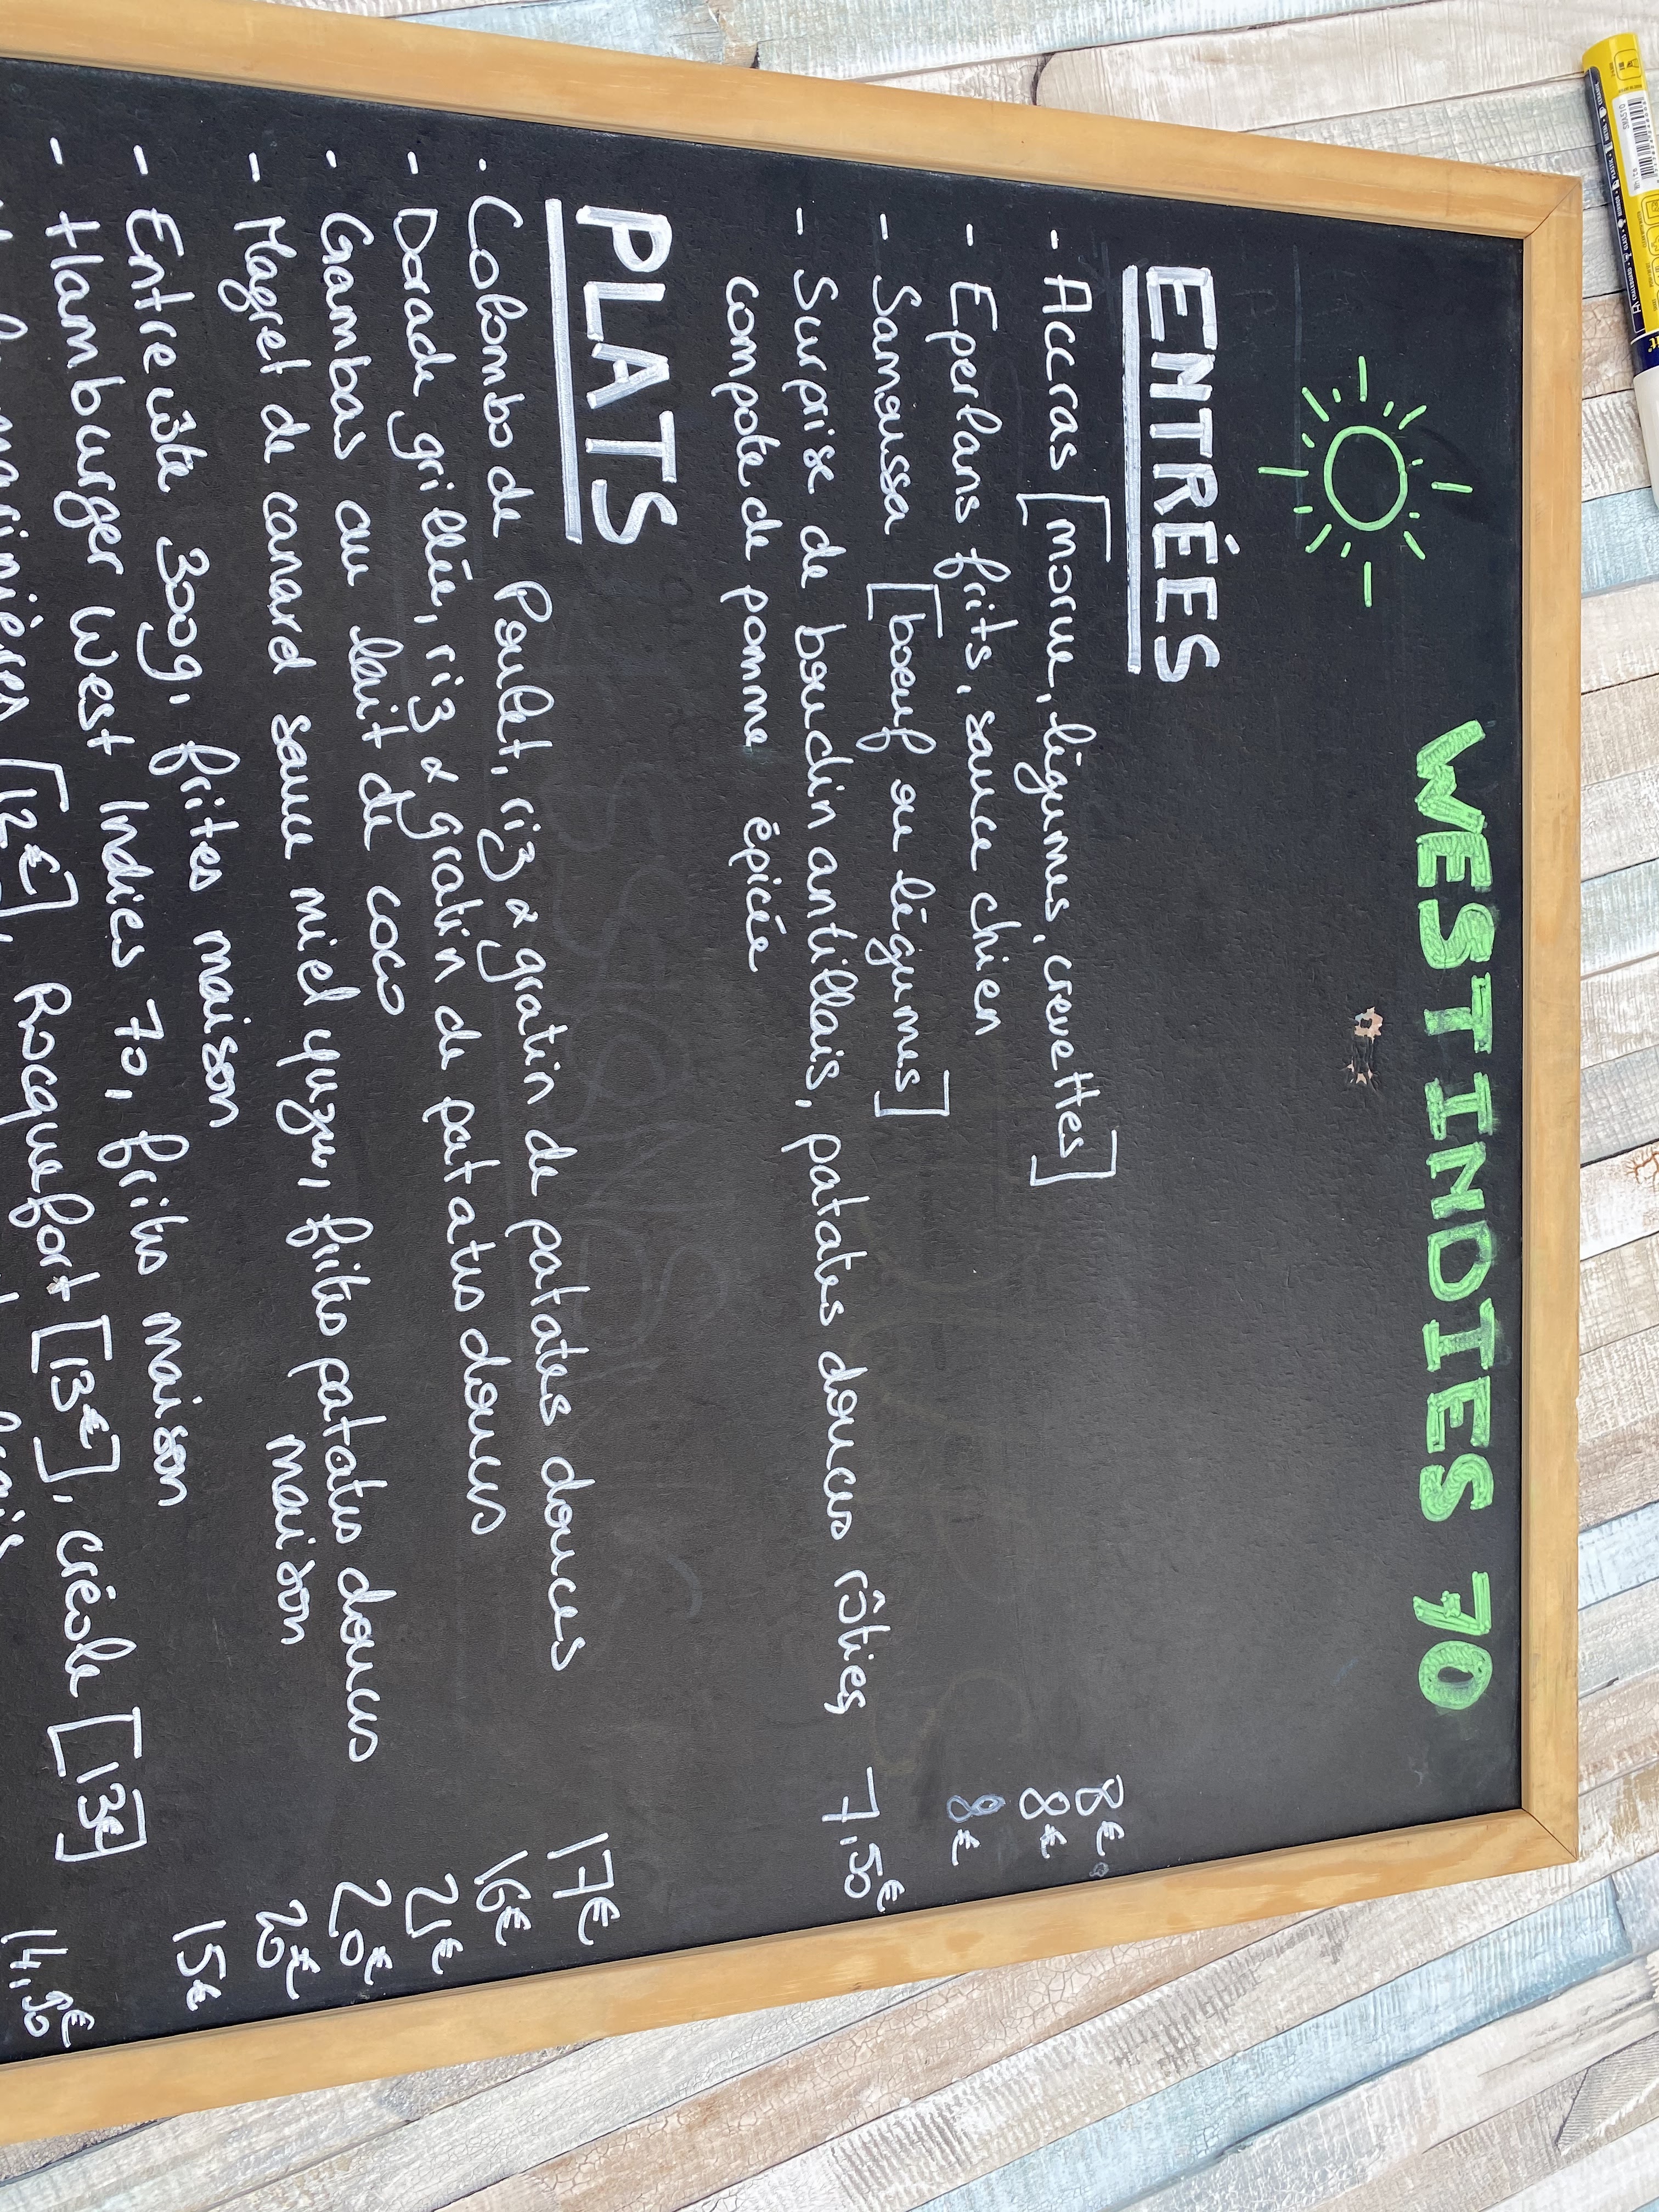 WEST INDIES 70
ENTRÉES
- Accras [morue, légumes, crevettes] 8€
- Eperlans frits, sauce chien 8€
- Samoussa [boeuf ou légumes] 8€
- Surprise de boudin antillais, patates douces rôties, 7,50€
compote de pomme épicée
PLATS
- Colombo de Poulet, riz & gratin de patates douces 17€
- Dorade grillée, riz & gratin de patates douces 16€
- Gambas au lait de coco 21€
- Magret de canard sauce miel yuzu, frites patates douces 20€
maison
- Entrecôte 300g, frites maison 20€
- Hamburger West Indies 70, frites maison 15€
Roquefort [13€], créole [13€]
14,90€